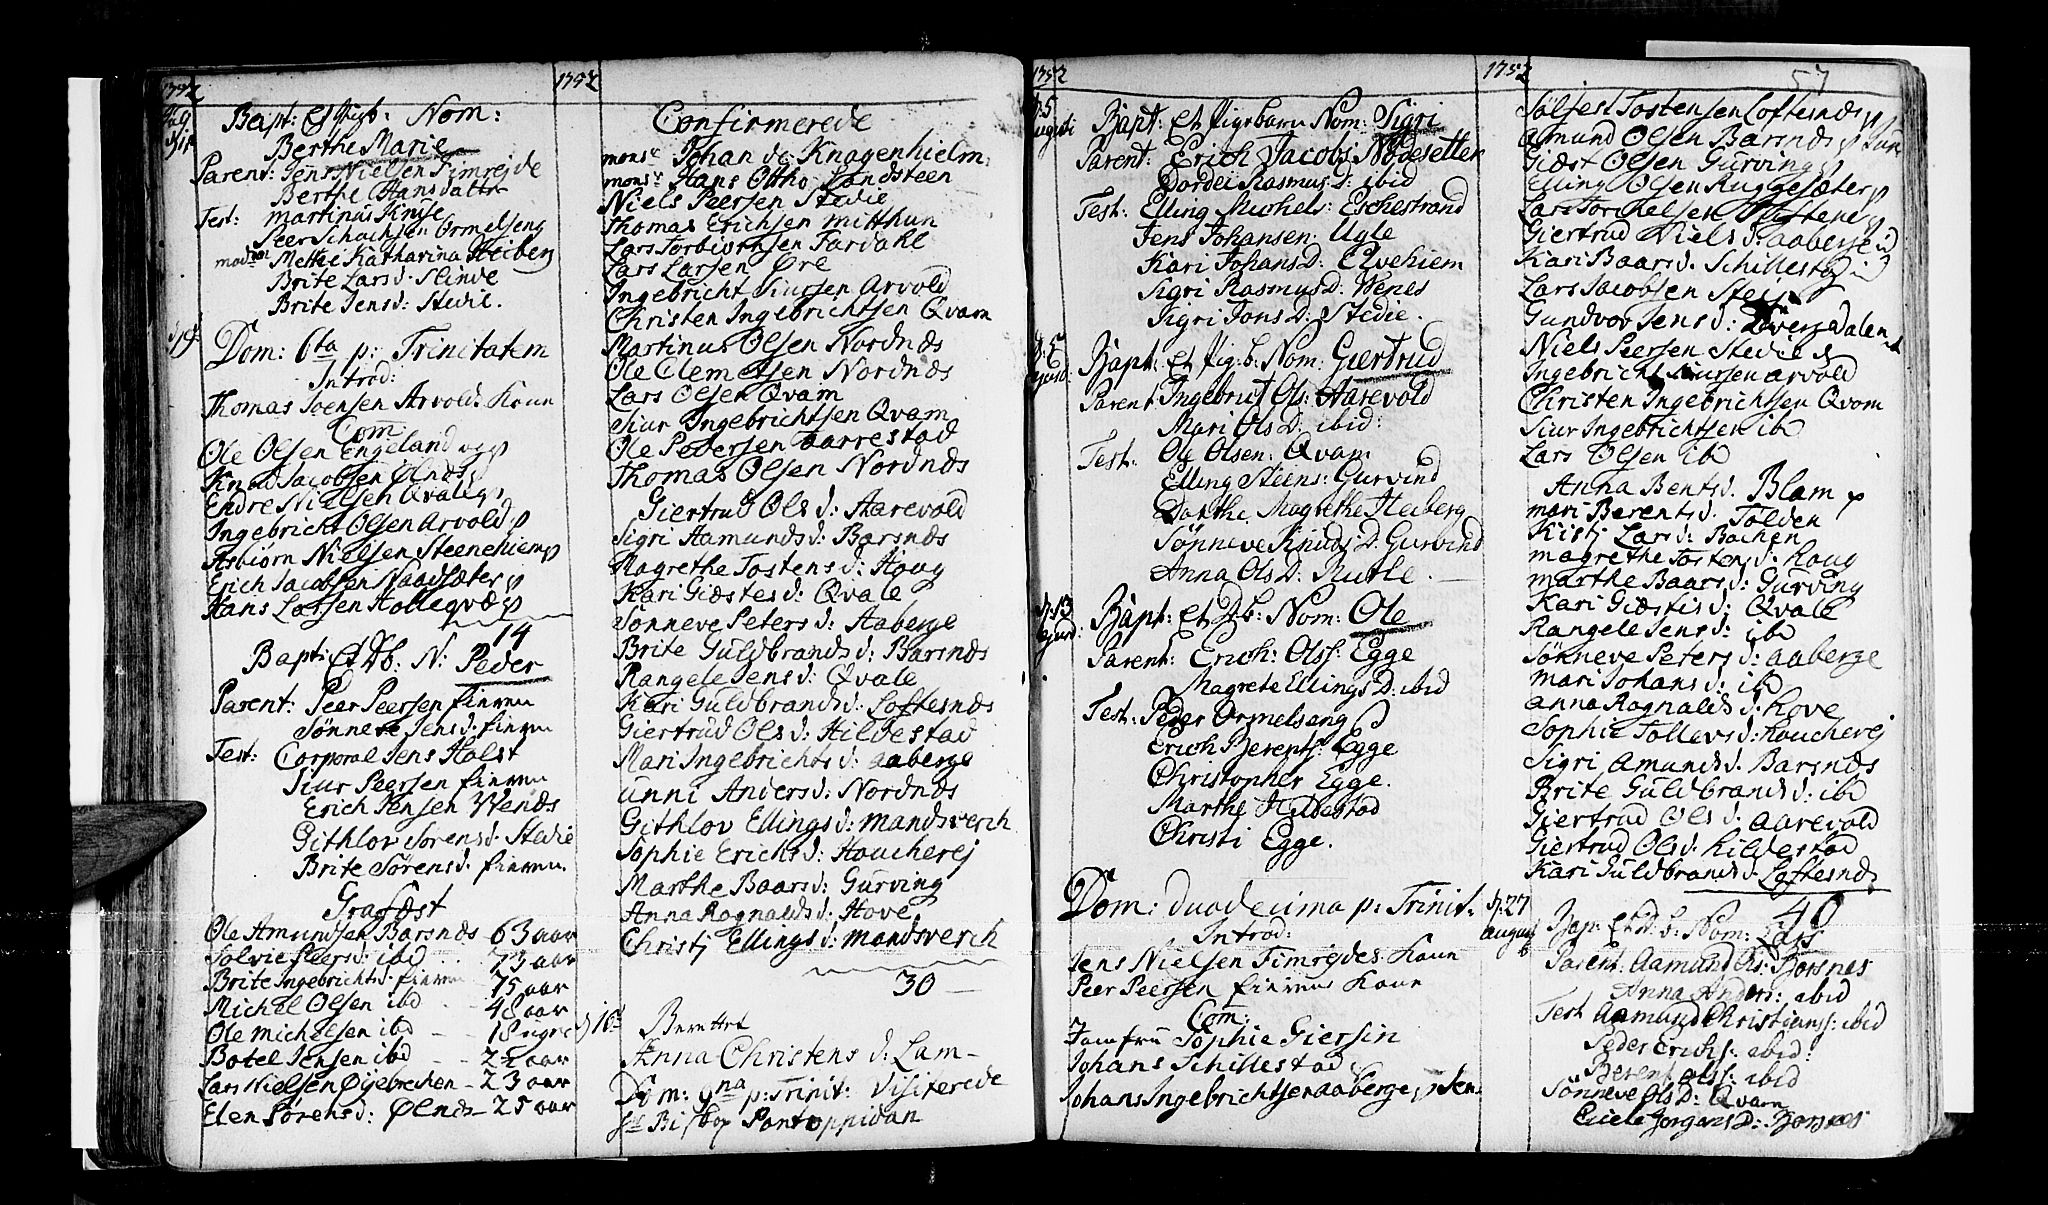 1752
1752
Bapt: Et Pigb. Nom:
Berthe Marie
Parent: Jens Nielsen Timrejde
Berthe Hansdattr
Test: Martinus Knise
Peer Schachsen Ormelseng
mad: Mette Katharina Heiberg
Brite Lars d. Slinde
Brite Jens d: Stedie.
Dom: 6ta p: Trinitatem
Introd:
Thomas Joensen Arvolds Konn
Com:
Ole Olsen Engeland
Knud Jacobsen Ølnæs
Endre Nielsen Qvale
Ingebricht Olsen Arvold
Asbiørn Nielsen Steenehiem
Erich Jacobsen Naadsæter
Hans Larsen Holleqvæ
14
Bapt: Et Db: N: Peder
Parent: Peer Peersen finven
Sønneve Jensd: finven
Test: Corporal Jens Holst
Siur Peersen finven
Erich Jensen Venæs
Githlov Sørens d: Stedie
Brite Sørens d. finven.
Grafæst
Ole Amundsen Barsnæs 63 aar
Solvie Peers d: ibd 73 aar
Brite Ingebrichts d: finven 75 aar
Michel Olsen ibd 48 aar
Ole Michelsen ibd 18 ugre
Botel Jensen ibd 22 aar
Lars Nielsen Øyebrechen 23 aar
Elen Sørens d: Ølnæs 25 aar
Confirmerede
monsr Johan de Knagenhielm
monsr Hans Ottho Landsteen
Niels Peersen Stedie
Thomas Erichsen Mitthun
Lars Torbiørnsen Fardahl
Lars Larsen Øre
Ingebricht Siursen Arvold
Christen Ingebrichtsen Qvam
Martinus Olsen Nordnæs
Ole Clemetsen Nordnæs
Lars Olsen Qvam
Siur Ingebrichtsen Qvam
Ole Pedersen aarrestad
Thomas Olsen Nordnæs
Giertrud Ols d: Aarevold
Sigri Aamunds d: Barsnæs
Magrethe Tostens d: Houg
Kari Giæstes d: Qvale
Sønneve Peters d: Aaberge
Brite Guldbrands d: Barsnæs
Rangele Jens d: Qvale
Kari Guldbrands d: Loftesnæs
Giertrud Ols d: Hildestad
Mari Ingebrichts d: aaberge
Unni Anders d: Nordnæs
Githlov Ellings d: Mandsverch
Sophie Erichs d: Houcherej
Marthe Baars d: Gurving
Anna Rognalds d: Hove
Christj Ellings d: Mandsverch
30
Berettet
Anna Christens d: Lam-
Dom: 9na p: Trinit: Visiterede
Hr Biskop Pontoppidan
1752
1752
57
d. 5 Augusti
Bapt: Et Pigebarn Nom: Sigri
Parent: Erich Jacobs: Nodesetter
Dordei Rasmus D: ibid
Test: Elling Michels: Eschestrand
Jens Johansen: Ugle
Kari Johans D: Elvehiem
Sigri Rasmus D: Venes
Sigri Jons D: Stedie.
Bapt: Et Pig: b: Nom: Giertrud
Parent Ingebrict Ols: Aarevold
Mari Ols D: ibid:
Test: Ole Olsen: Qvam
Elling Steens: Gurvind
Dorthe Magrethe Heiberg
Sønneve Knuds D: Gurvind
Anna Ols D: Rutle.
d: 13
Bapt: Et D b: Nom: Ole
Parent: Erich: Olss: Egge
Magrete Ellings D: ibid
Test: Peder Ormelseng
Erich Berents: Egge
Christopher Egge.
Marthe Hildestad
Christi Egge.
Dom: duodecima p: Trinit:
Introd:
Jens Nielsen Timrejdes Konn
Peer Peersen finvens Konn
Com:
Jomfru Sophie Giersin
Johans Schillestad
Johans Ingebrichtsen aaberge
Sølfest Tostensen Loftesnæs
Amund Olsen Barsnæs
Giæst Olsen Gurving
Elling Olsen Ruggesæter
Lars Torchelsen
Giertrud Niels d: aaberge
Kari Baars d. Schillestad
Lars Jacobsen
Gundvor Jens d:
Niels Peersen Stedie
Ingebricht Siursen arvold
Christen Ingebrichtsen Qvom
Siur Ingebrichtsen ibd
Lars Olsen ibd
Anna Bents d. Blam
mari Berents d: Tolden
Kisti Lars d: Bachen
magrethe Tostens d: houg
marthe Baars d: Gurving
Kari Giæstes d: Qvale
Rangele Jens d: ibd
Sønneve Peters d: aaberge
mari Johans d: ibd
anna Rognalds d: hove
Sophie Tollevs d: Houcherej
Sigri amunds d: Barsnæs
Brite Guldbrands d: ibd
Giertrud Ols d: aarevold
Giertrud Ols d: hildestad
Kari Guldbrands d: Loftesnæs
40
d: 27 augusti
Bap: Et D: b: Nom: Lars
Parent: Aamund Ols: Borsnes
Anna Anders: ibid
Test Aamund Christians: ibid
Peder Erichs: ibid:
Berent Olss: ibid
Sønneve Ols D: Qvam
Eviele Jorgens D: Borsnes